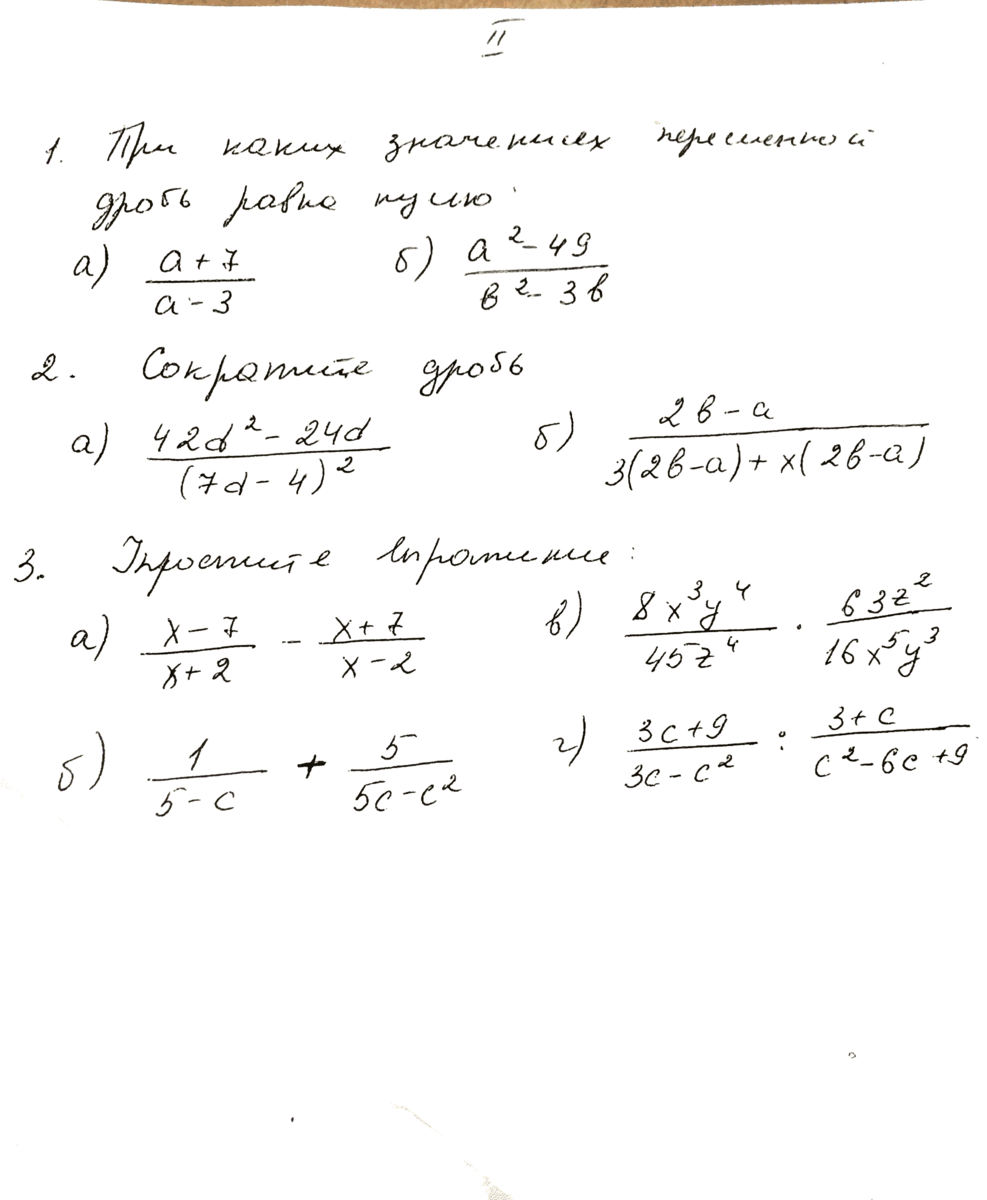 II
1. При каких значениях переменной
дробь равна нулю:
а) (a + 7)/(a - 3) б) (a² - 49)/(b² - 3b)
2. Сократите дробь
а) (42d² - 24d)/(7d - 4)² б) (2b - a)/(3(2b-a) + x(2b-a))
3. Упростите выражение:
а) (x - 7)/(x + 2) - (x + 7)/(x - 2) в) (8x³y⁴)/(45z⁴) · (63z²)/(16x⁵y³)
б) 1/(5 - c) + 5/(5c - c²) г) (3c + 9)/(3c - c²) : (3 + c)/(c² - 6c + 9)